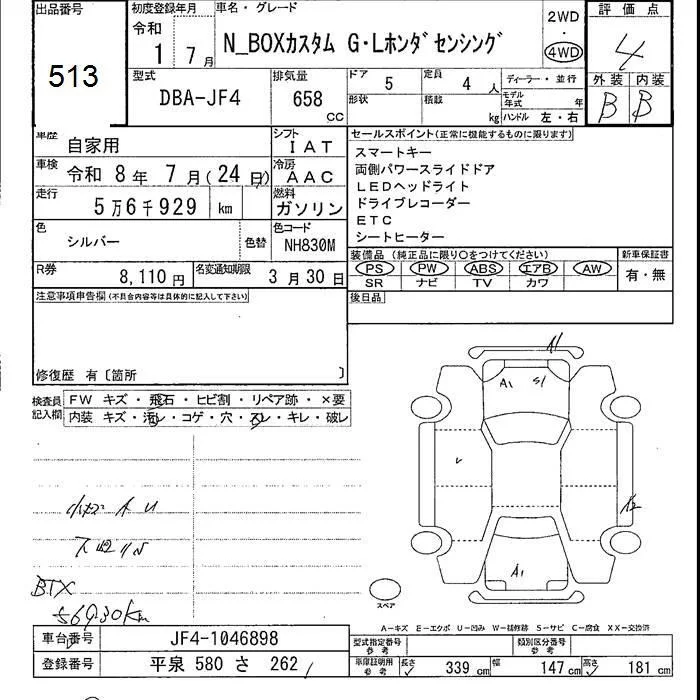 出品番号
513
初度登録年月
令和
1 7月
車名・グレード
N_BOXカスタム G・Lホンダセンシング
2WD
・
4WD
評価点
4
外装 内装
B B
型式
DBA-JF4
排気量
658 CC
ドア 5
定員 4 人
ディーラー・並行
形状
積載 kg
モデル年式 年
ハンドル 左・右
車歴 自家用
シフト IAT
車検 令和 8年 7月(24日)
冷房 AAC
走行 5万6千929 km
燃料 ガソリン
色 シルバー
色替
色コード NH830M
R券 8,110円
名変通知期限 3月30日
セールスポイント(正常に機能するものに限ります)
スマートキー
両側パワースライドドア
LEDヘッドライト
ドライブレコーダー
ETC
シートヒーター
装備品 (純正品に限り○をつけてください)
PS PW ABS エアB AW
SR ナビ TV カワ
新車保証書
有・無
後日品
注意事項申告欄(不具合内容等は具体的に記入して下さい)
修復歴 有〔箇所 〕
検査員記入欄
FW キズ・飛石・ヒビ割・リペア跡・×要
内装 キズ・汚レ・コゲ・穴・スレ・キレ・破レ
BTX
56930km
A1
A1 S1
A2
A1
スペア
A-キズ E-エクボ U-凹み W-補修跡 S-サビ C-腐食 XX-交換済
車台番号 JF4-1046898
登録番号 平泉 580 さ 262
型式指定番号 参考
類別区分番号 参考
車庫証明用 参考
長さ 339 cm
幅 147 cm
高さ 181 cm